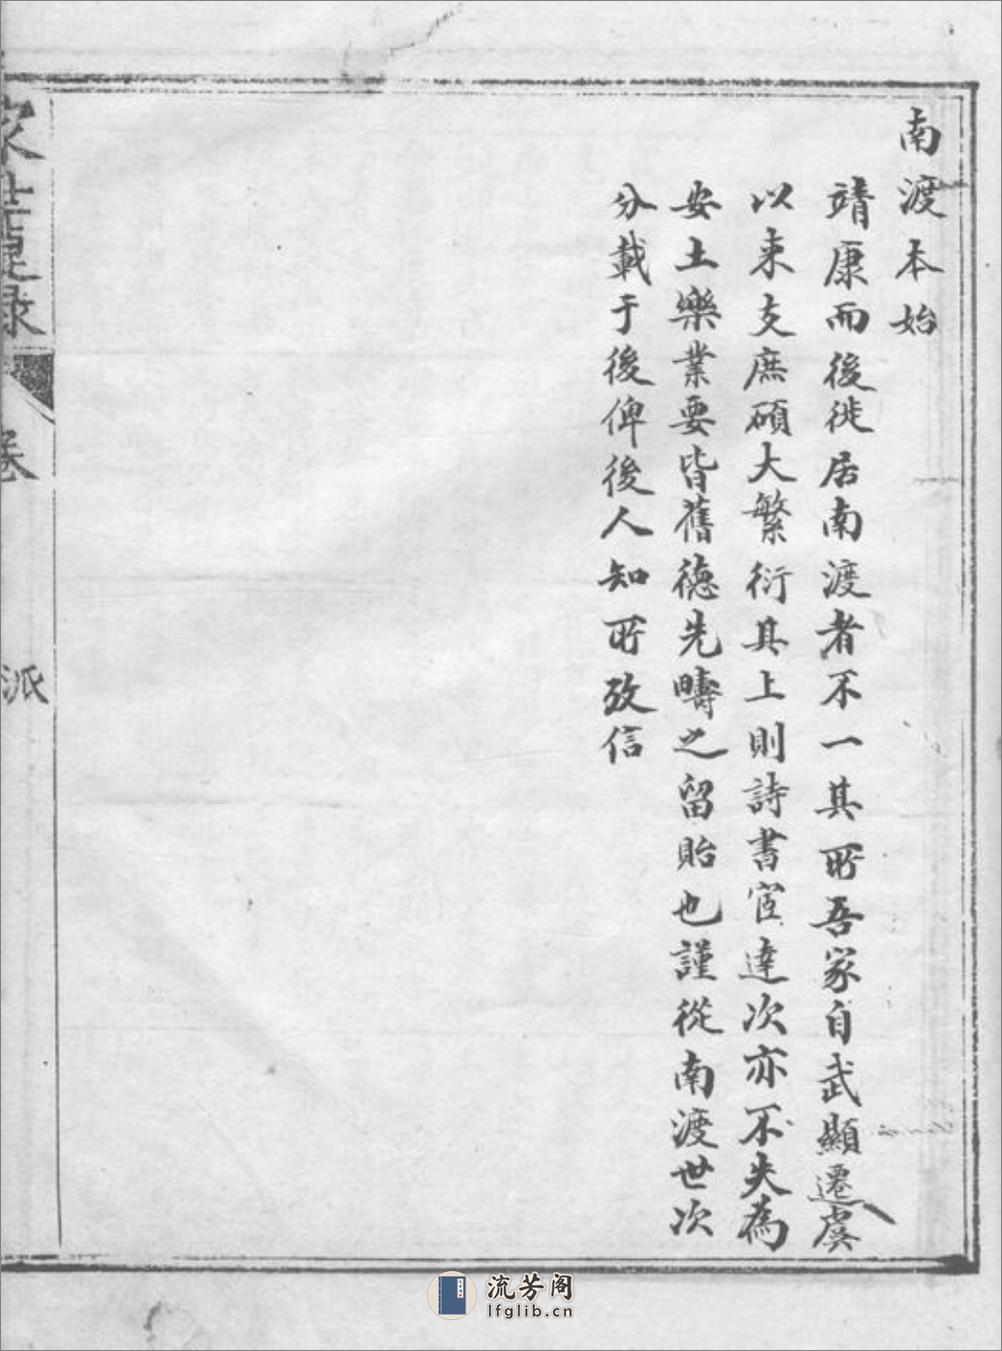 南渡本始
靖康而後徙居南渡者不一其所吾家自武顯遷虞
以来支庶碩大繁衍其上則詩書宦達次亦不失為
安土樂業要皆舊德先疇之留貽也謹從南渡世次
分載于後俾後人知所攷信
家
錄
卷
派
流芳阁
lfglib.cn